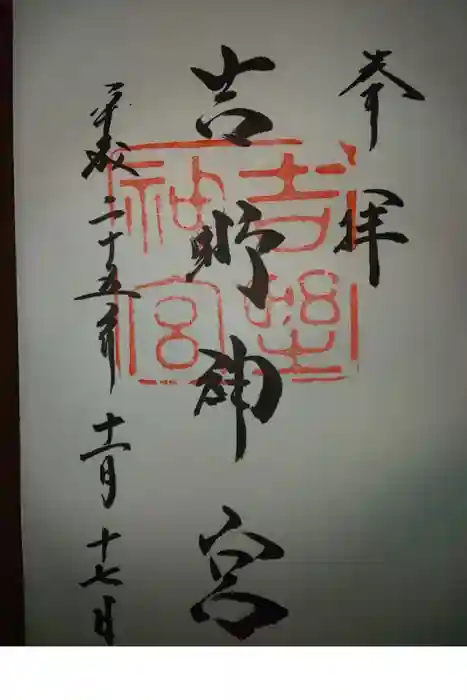 奉拝
吉野神宮
平成二十五年十一月十七日
吉野
神宮